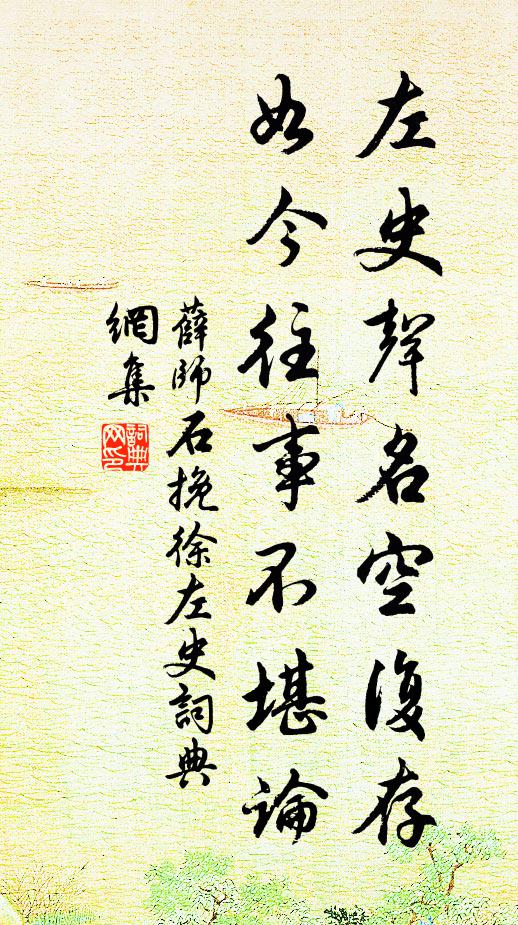 左史聲名空復存
如今往事不堪論
薛師石挽徐左史詞典
網集
詞典
网印